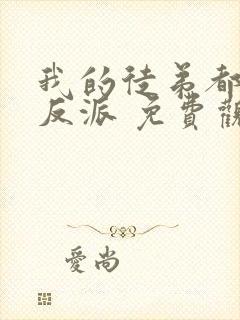 我的徒弟都
反派 免費觀
愛尚